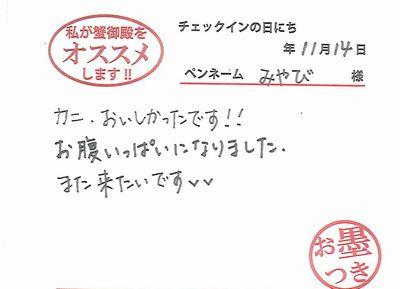 私が蟹御殿を
オススメ
します!!
チェックインの日にち
年 11月14日
ペンネーム みやび 様
カニ、おいしかったです!!
お腹いっぱいになりました.
また来たいです
お墨
つき